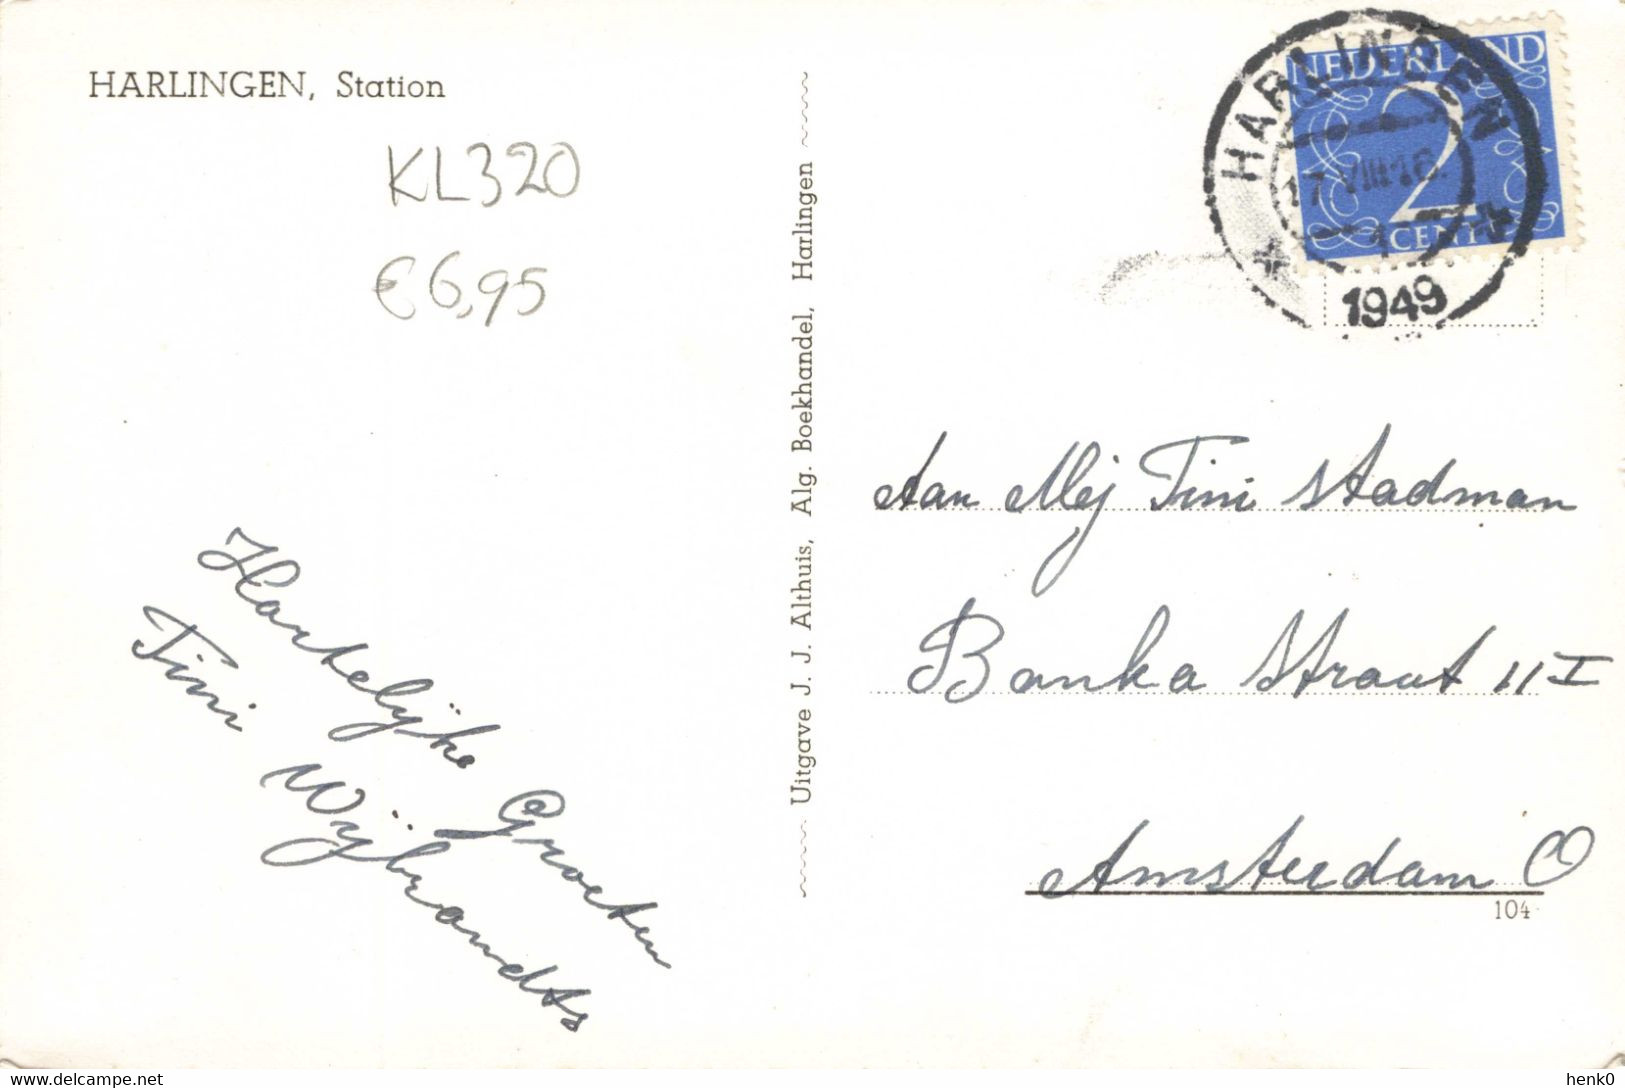 HARLINGEN, Station
KL320
€6,95
Hartelijke Groeten
Tini Wijbrandts
Uitgave J. J. Althuis, Alg. Boekhandel, Harlingen
NEDERLAND
2
CENT
HARLINGEN
17 VIII 16
1949
Aan Mej Tini Stadman
Banka Straat 11 I
Amsterdam O
104
www.delcampe.net
henk0